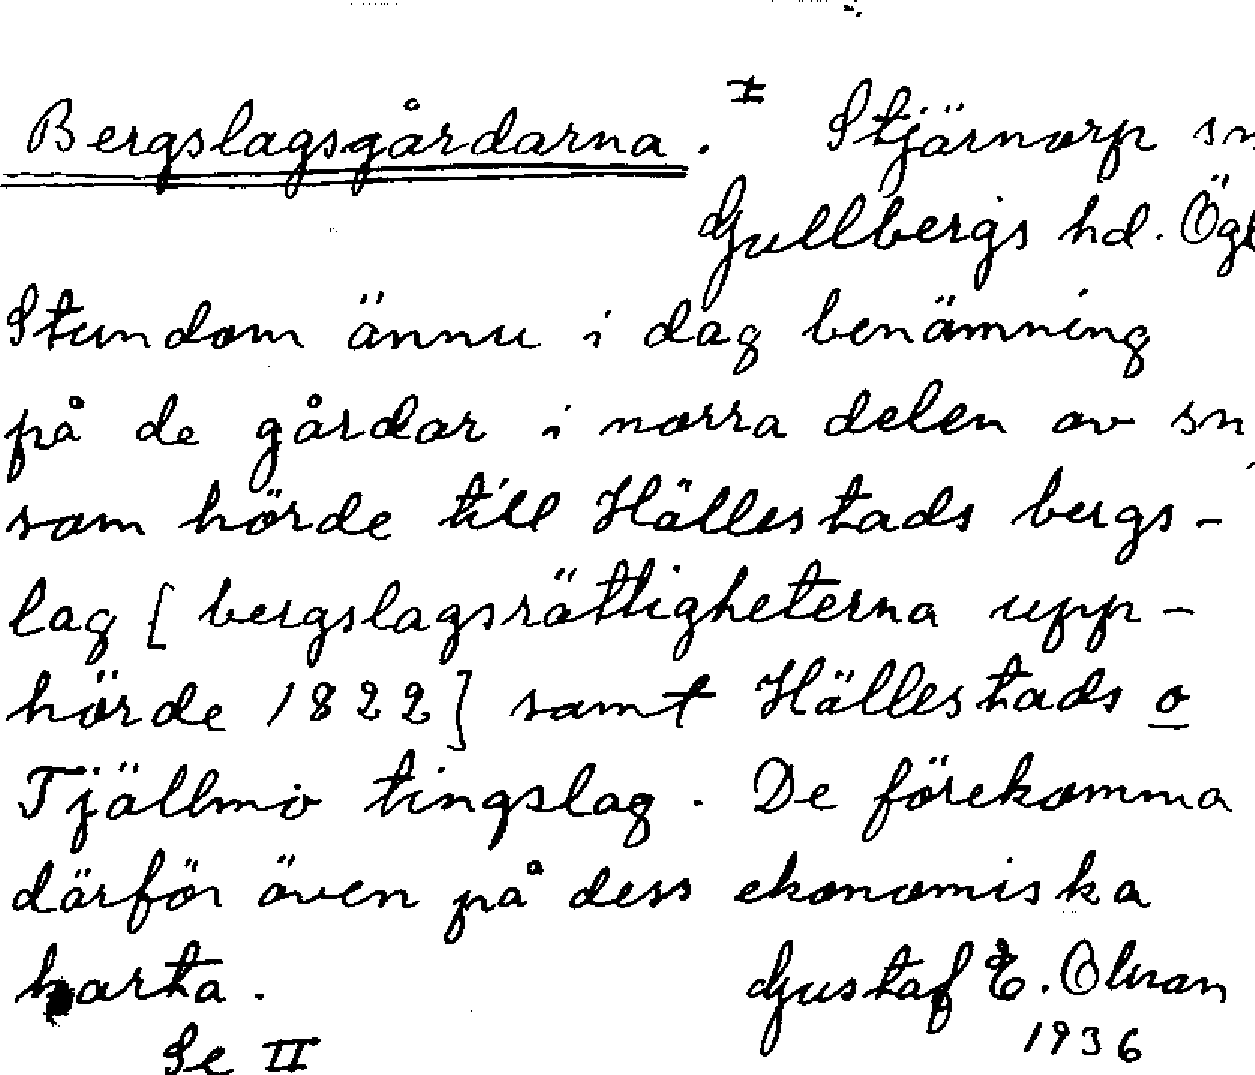 Bergslagsgårdarna. I Stjärnorp sn
Gullbergs hd. Ögl
Stundom ännu i dag benämning
på de gårdar i norra delen av sn,
som hörde till Hällestads bergs-
lag [bergslagsrättigheterna upp-
hörde 1822] samt Hällestads o
Tjällmo tingslag. De förekomma
därför även på dess ekonomiska
karta. Gustaf E. Olsson
Se II 1936